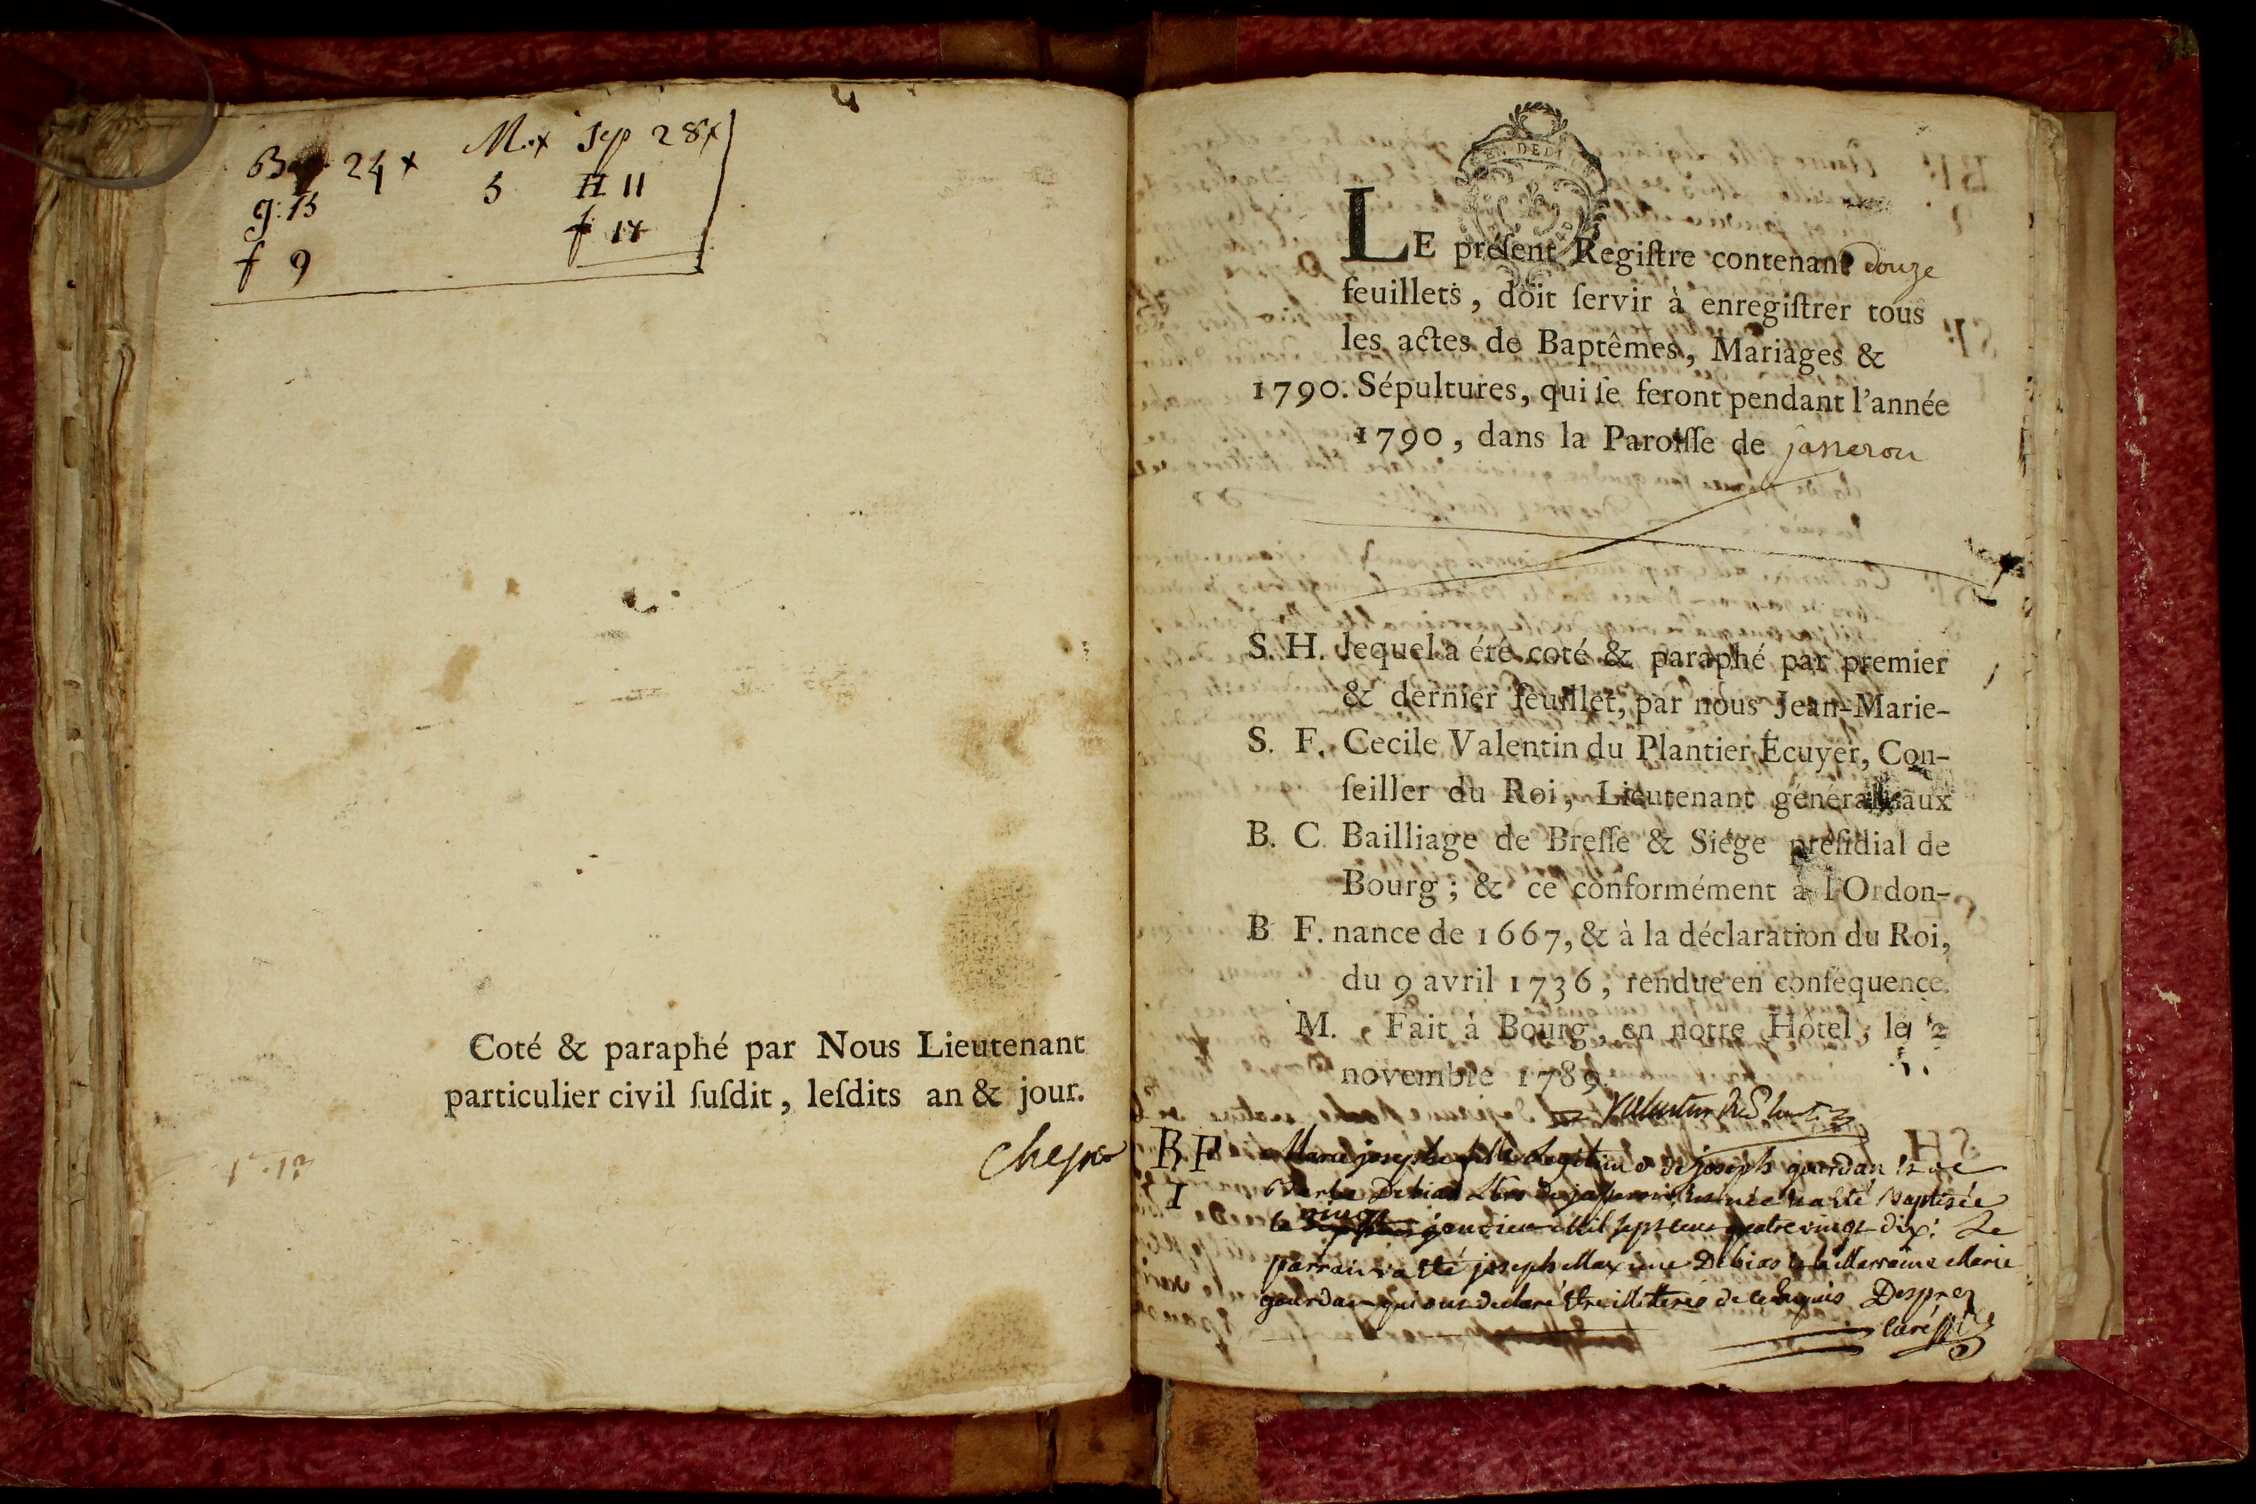 Bap. 24 x M. x Sep 28 x
g: 15 5 H 11
f 9 f 17
Coté & paraphé par Nous Lieutenant
particulier civil ſuſdit, leſdits an & jour.
LE préſent Regiſtre contenant douze
feuillets, doit ſervir à enregiſtrer tous
les actes de Baptêmes, Mariages &
1790. Sépultures, qui ſe feront pendant l'année
1790, dans la Paroiſſe de jasseron
S. H. lequel a été coté & paraphé par premier
& dernier feuillet, par nous Jean-Marie-
S. F. Cecile Valentin du Plantier Écuyer, Con-
ſeiller du Roi, Lieutenant général aux
B. C. Bailliage de Breſſe & Siége préſidial de
Bourg; & ce conformément à l'Ordon-
B F. nance de 1667, & à la déclaration du Roi,
du 9 avril 1736, rendue en conſéquence.
M. Fait à Bourg, en notre Hôtel, le 12
novembre 1789.
Valentin du Plantier
B F Marie josephe fille Legitime de joseph gourdan et de
1 Debias de jasseron née a été Baptisée
le vingt janvier mil sept cent quatre vingt dix: Le
parrain a été joseph Marie Debias et la Marraine Marie
gourdan qui ont declaré être illiteres de ce requis Desprez
Curé